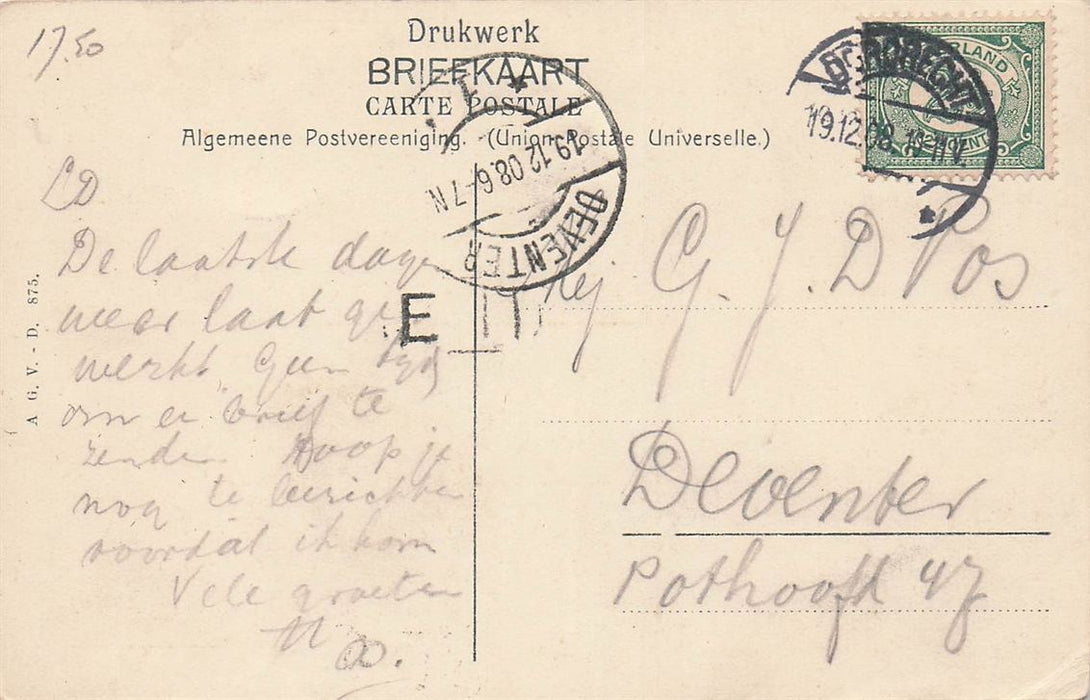 17.50
Drukwerk
BRIEFKAART
CARTE POSTALE
Algemeene Postvereeniging. (Union Postale Universelle.)
DORDRECHT
19.12.08. 11V.
DEVENTER
19.12.08.6-7N
1
E
A G. V. - D. 875.
LD
De laatste dage
weer laat ge
werkt. Geen tyd
om er brief te
zenden Hoop je
nog te berichten
voordat ik kom
Vele groeten
G. J. D Pos
Deventer
Pothoofd 47